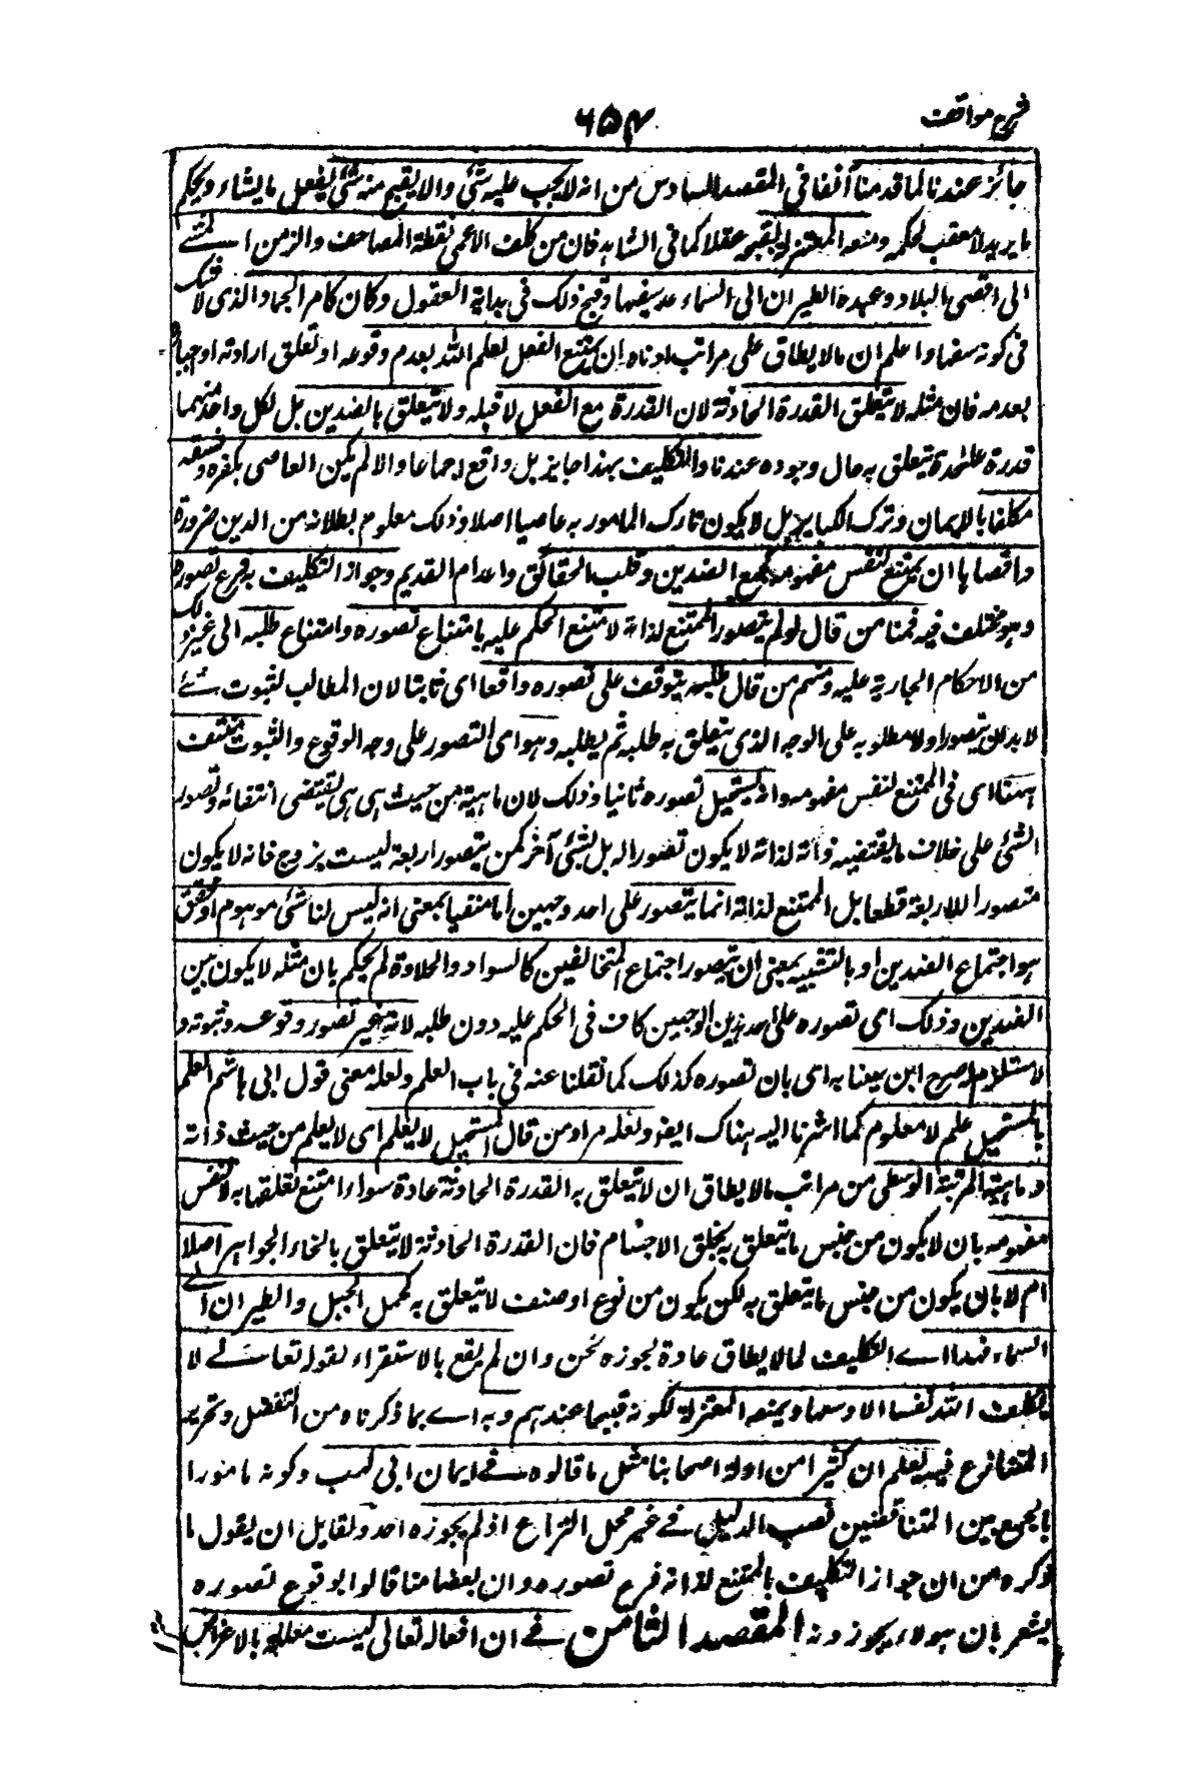 شرح مواقف
۶۵۴
جائز عندنا لما قدمنا آنفا فی المقصد السادس من انه لا یجب علیه شئی ولا یقبح منه شئی یفعل ما یشاء و یحکم
ما یرید لا معقب لحکمه و منعه المعتزلة لقبحه عقلا کما فی الشاهد فان من کلف الاعمی نقطة المصاحف والزمن المشے
الی اقصی البلاد و عبده الطیران الی السماء عد سفیها و قبح ذلک فی بدایة العقول و کان کامر الجماد الذی لا شک
فی کونه سفها و اعلم ان ما لا یطاق علی مراتب ادناه ان یمتنع الفعل لعلم الله بعدم وقوعه او تعلق ارادته او اخباره
بعدمه فان مثله لا یتعلق القدرة الحادثة لان القدرة مع الفعل لا قبله ولا یتعلق بالضدین بل لکل واحد منهما
قدرة علٰحدة یتعلق به حال وجوده عندنا والتکلیف بهذا جایز بل واقع اجماعا والا لم یکن العاصی بکفره و فسقه
مکلفا بالایمان و ترک الکبایر بل لا یکون تارک المامور به عاصیا اصلا و ذلک معلوم بطلانه من الدین ضرورة
و اقصاها ان یمتنع لنفس مفهومه کجمع الضدین و قلب الحقائق و اعدام القدیم و جواز التکلیف به فرع تصوره
و هو مختلف فیه فمنا من قال لو لم یتصور الممتنع لذاته لامتنع الحکم علیه بامتناع تصوره و امتناع طلبه الی غیر ذلک
من الاحکام الجاریة علیه و منهم من قال طلبه یتوقف علی تصوره واقعا ای ثابتا لان المطالب لثبوت شئے
لا بد ان یتصور اولا مطلوبه علی الوجه الذی یتعلق به طلبه ثم یطلبه و هو ای التصور علی وجه الوقوع والثبوت منتف
ههنا ای فی الممتنع لنفس مفهومه و انه یستحیل تصوره ثابتا و ذلک لان ماهیته من حیث هی هی تقتضی انتفائه و تصور
الشئی علی خلاف ما یقتضیه ذاته لذاته لا یکون تصورا له بل لشئی آخر کمن یتصور اربعة لیست بزوج فانه لا یکون
متصورا للاربعة قطعا بل الممتنع لذاته انما یتصور علی احد وجهین اما منفیا بمعنی انه لیس لنا شئی موهوم او محقق
هو اجتماع الضدین او بالتشبیه بمعنی ان یتصور اجتماع المتخالفین کالسواد والحلاوة ثم یحکم بان مثله لا یکون بین
الضدین و ذلک ای تصوره علی احد هذین الوجهین کاف فی الحکم علیه دون طلبه لانه غیر تصور وقوعه و ثبوته و
لا مستلزم له صرح ابن سینا به ای بان تصوره کذلک کما نقلنا عنه فی باب العلم و لعله معنی قول ابی هاشم العلم
بالمستحیل علم لا معلوم له کما اشرنا الیه هناک ایضا و لعله مراد من قال المستحیل لا یعلم ای لا یعلم من حیث ذاته
و ماهیته المرتبة الوسطی من مراتب ما لا یطاق ان لا یتعلق به القدرة الحادثة عادة سواء امتنع تعلقها به لا لنفس
مفهومه بان لا یکون من جنس ما یتعلق به کخلق الاجسام فان القدرة الحادثة لا یتعلق بایجاد الجواهر اصلا
ام لا بان یکون من جنس ما یتعلق به لکن یکون من نوع او صنف لا یتعلق به کحمل الجبل والطیران الے
السماء فهذا اے التکلیف لما لا یطاق عادة یجوزه نحن و ان لم یقع بالاستقراء لقوله تعالے لا
یکلف الله نفسا الا وسعها و یمنعه المعتزلة لکونه قبیحا عندهم و به اے بما ذکرناه من التفصیل و تحریر
المتنازع فیه یعلم ان کثیرا من ادلة اصحابنا مثل ما قالوه فے ایمان ابی لهب و کونه مامورا
بالجمع بین المتناقضین نصب الدلیل فے غیر محل النزاع اذ لم یجوزه احد و لقایل ان یقول ما
ذکره من ان جواز التکلیف بالممتنع لذاته فرع تصوره و ان بعضا منا قالوا بوقوع تصوره
یشعر بان هولاء یجوزونه المقصد الثامن فے ان افعاله تعالی لیست معللة بالاغراض